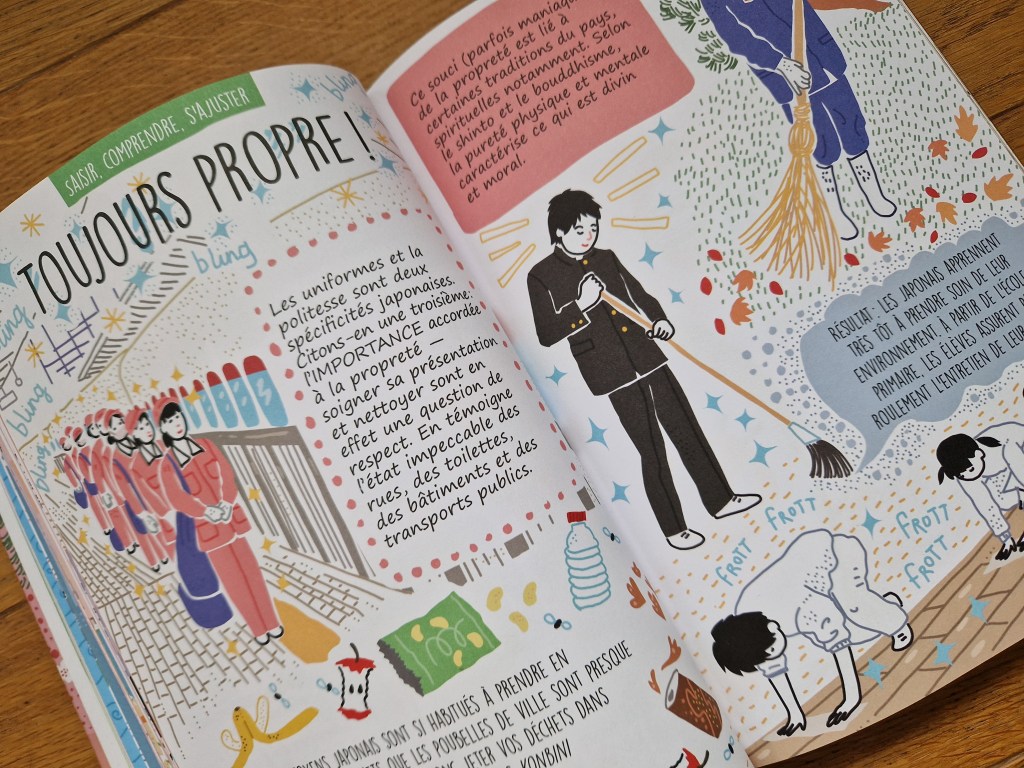 SAISIR, COMPRENDRE, S'AJUSTER
TOUJOURS PROPRE !
bling
bling
bling
bling
Les uniformes et la
politesse sont deux
spécificités japonaises.
Citons-en une troisième:
l'IMPORTANCE accordée
à la propreté —
soigner sa présentation
et nettoyer sont en
effet une question de
respect. En témoigne
l'état impeccable des
rues, des toilettes,
des bâtiments et des
transports publics.
JAPONAIS SONT SI HABITUÉS À PRENDRE EN
QUE LES POUBELLES DE VILLE SONT PRESQUE
JETER VOS DÉCHETS DANS
KONBINI
Ce souci (parfois
de la propreté est lié à
certaines traditions du pays,
spirituelles notamment. Selon
le shinto et le bouddhisme,
la pureté physique et mentale
caractérise ce qui est divin
et moral.
RÉSULTAT: LES JAPONAIS APPRENNENT
TRÈS TÔT À PRENDRE SOIN DE LEUR
ENVIRONNEMENT. À PARTIR DE L'ÉCOLE
PRIMAIRE, LES ÉLÈVES ASSURENT
ROULEMENT L'ENTRETIEN DE LEUR
FROTT
FROTT
FROTT
FROTT